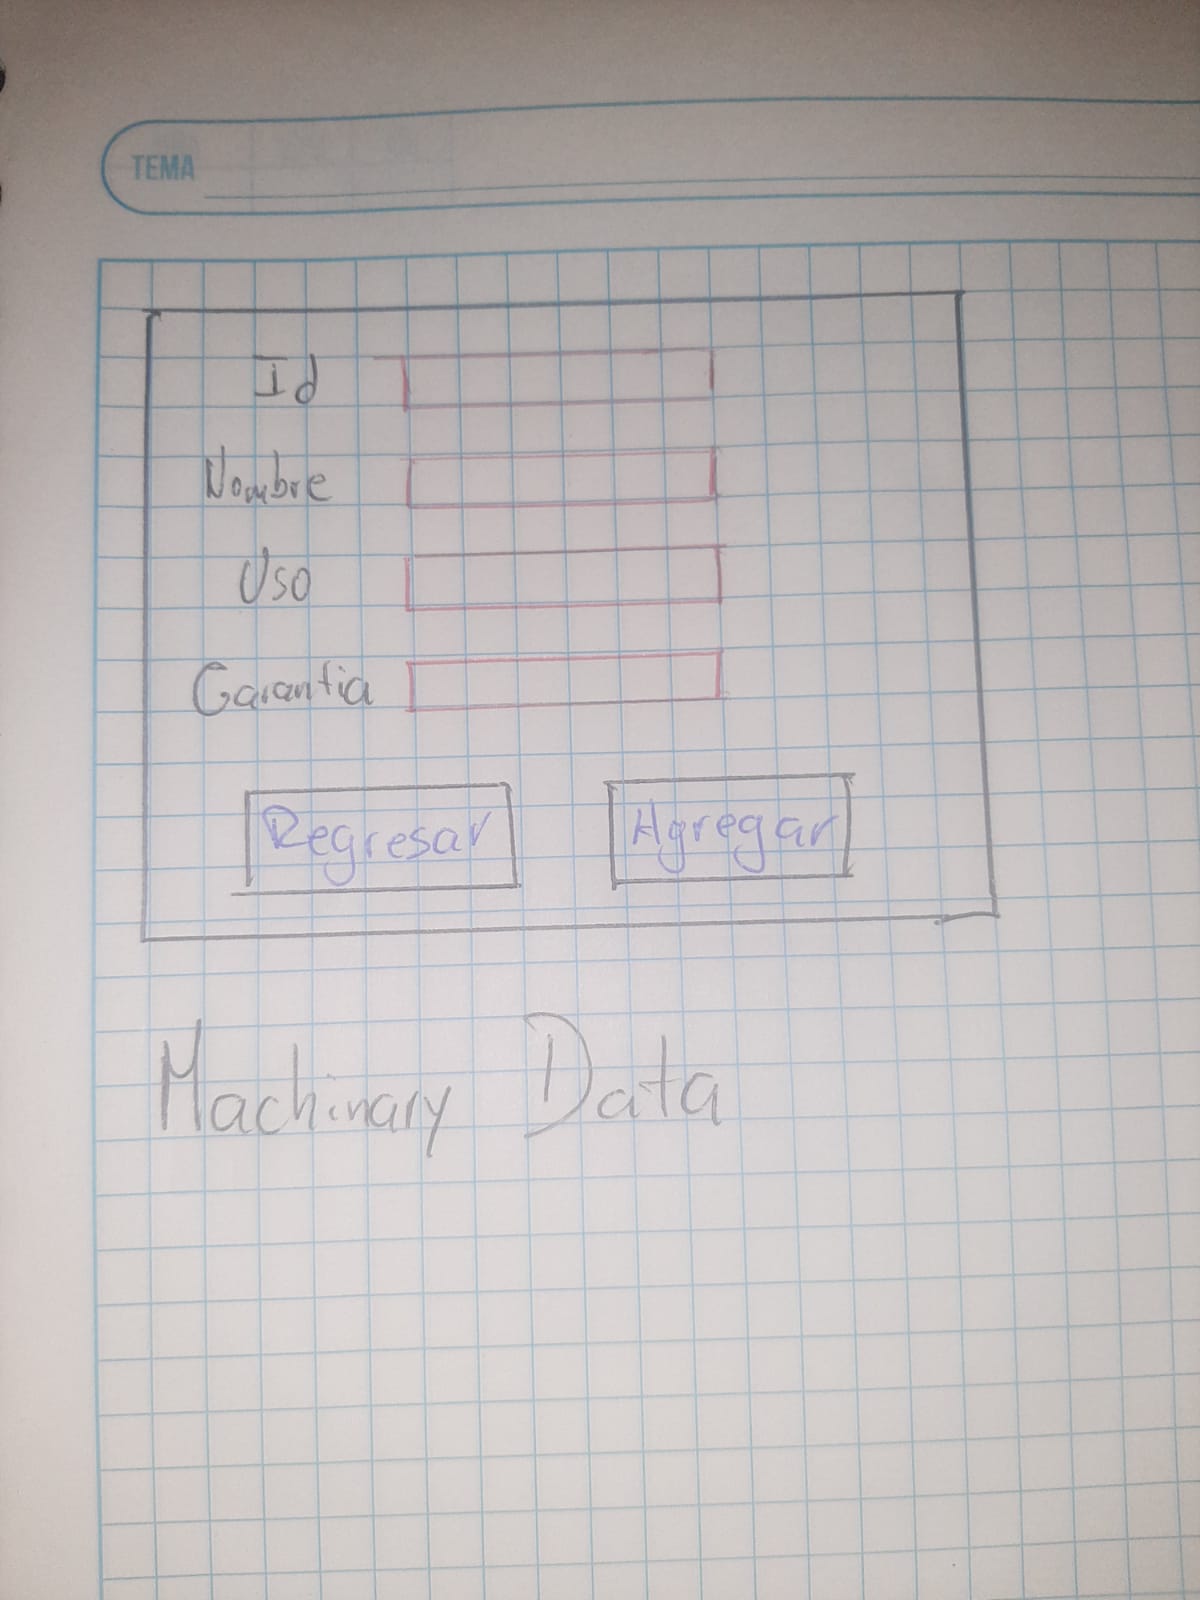 TEMA
Id
Nombre
Uso
Garantia
Regresar Agregar
Machinary Data